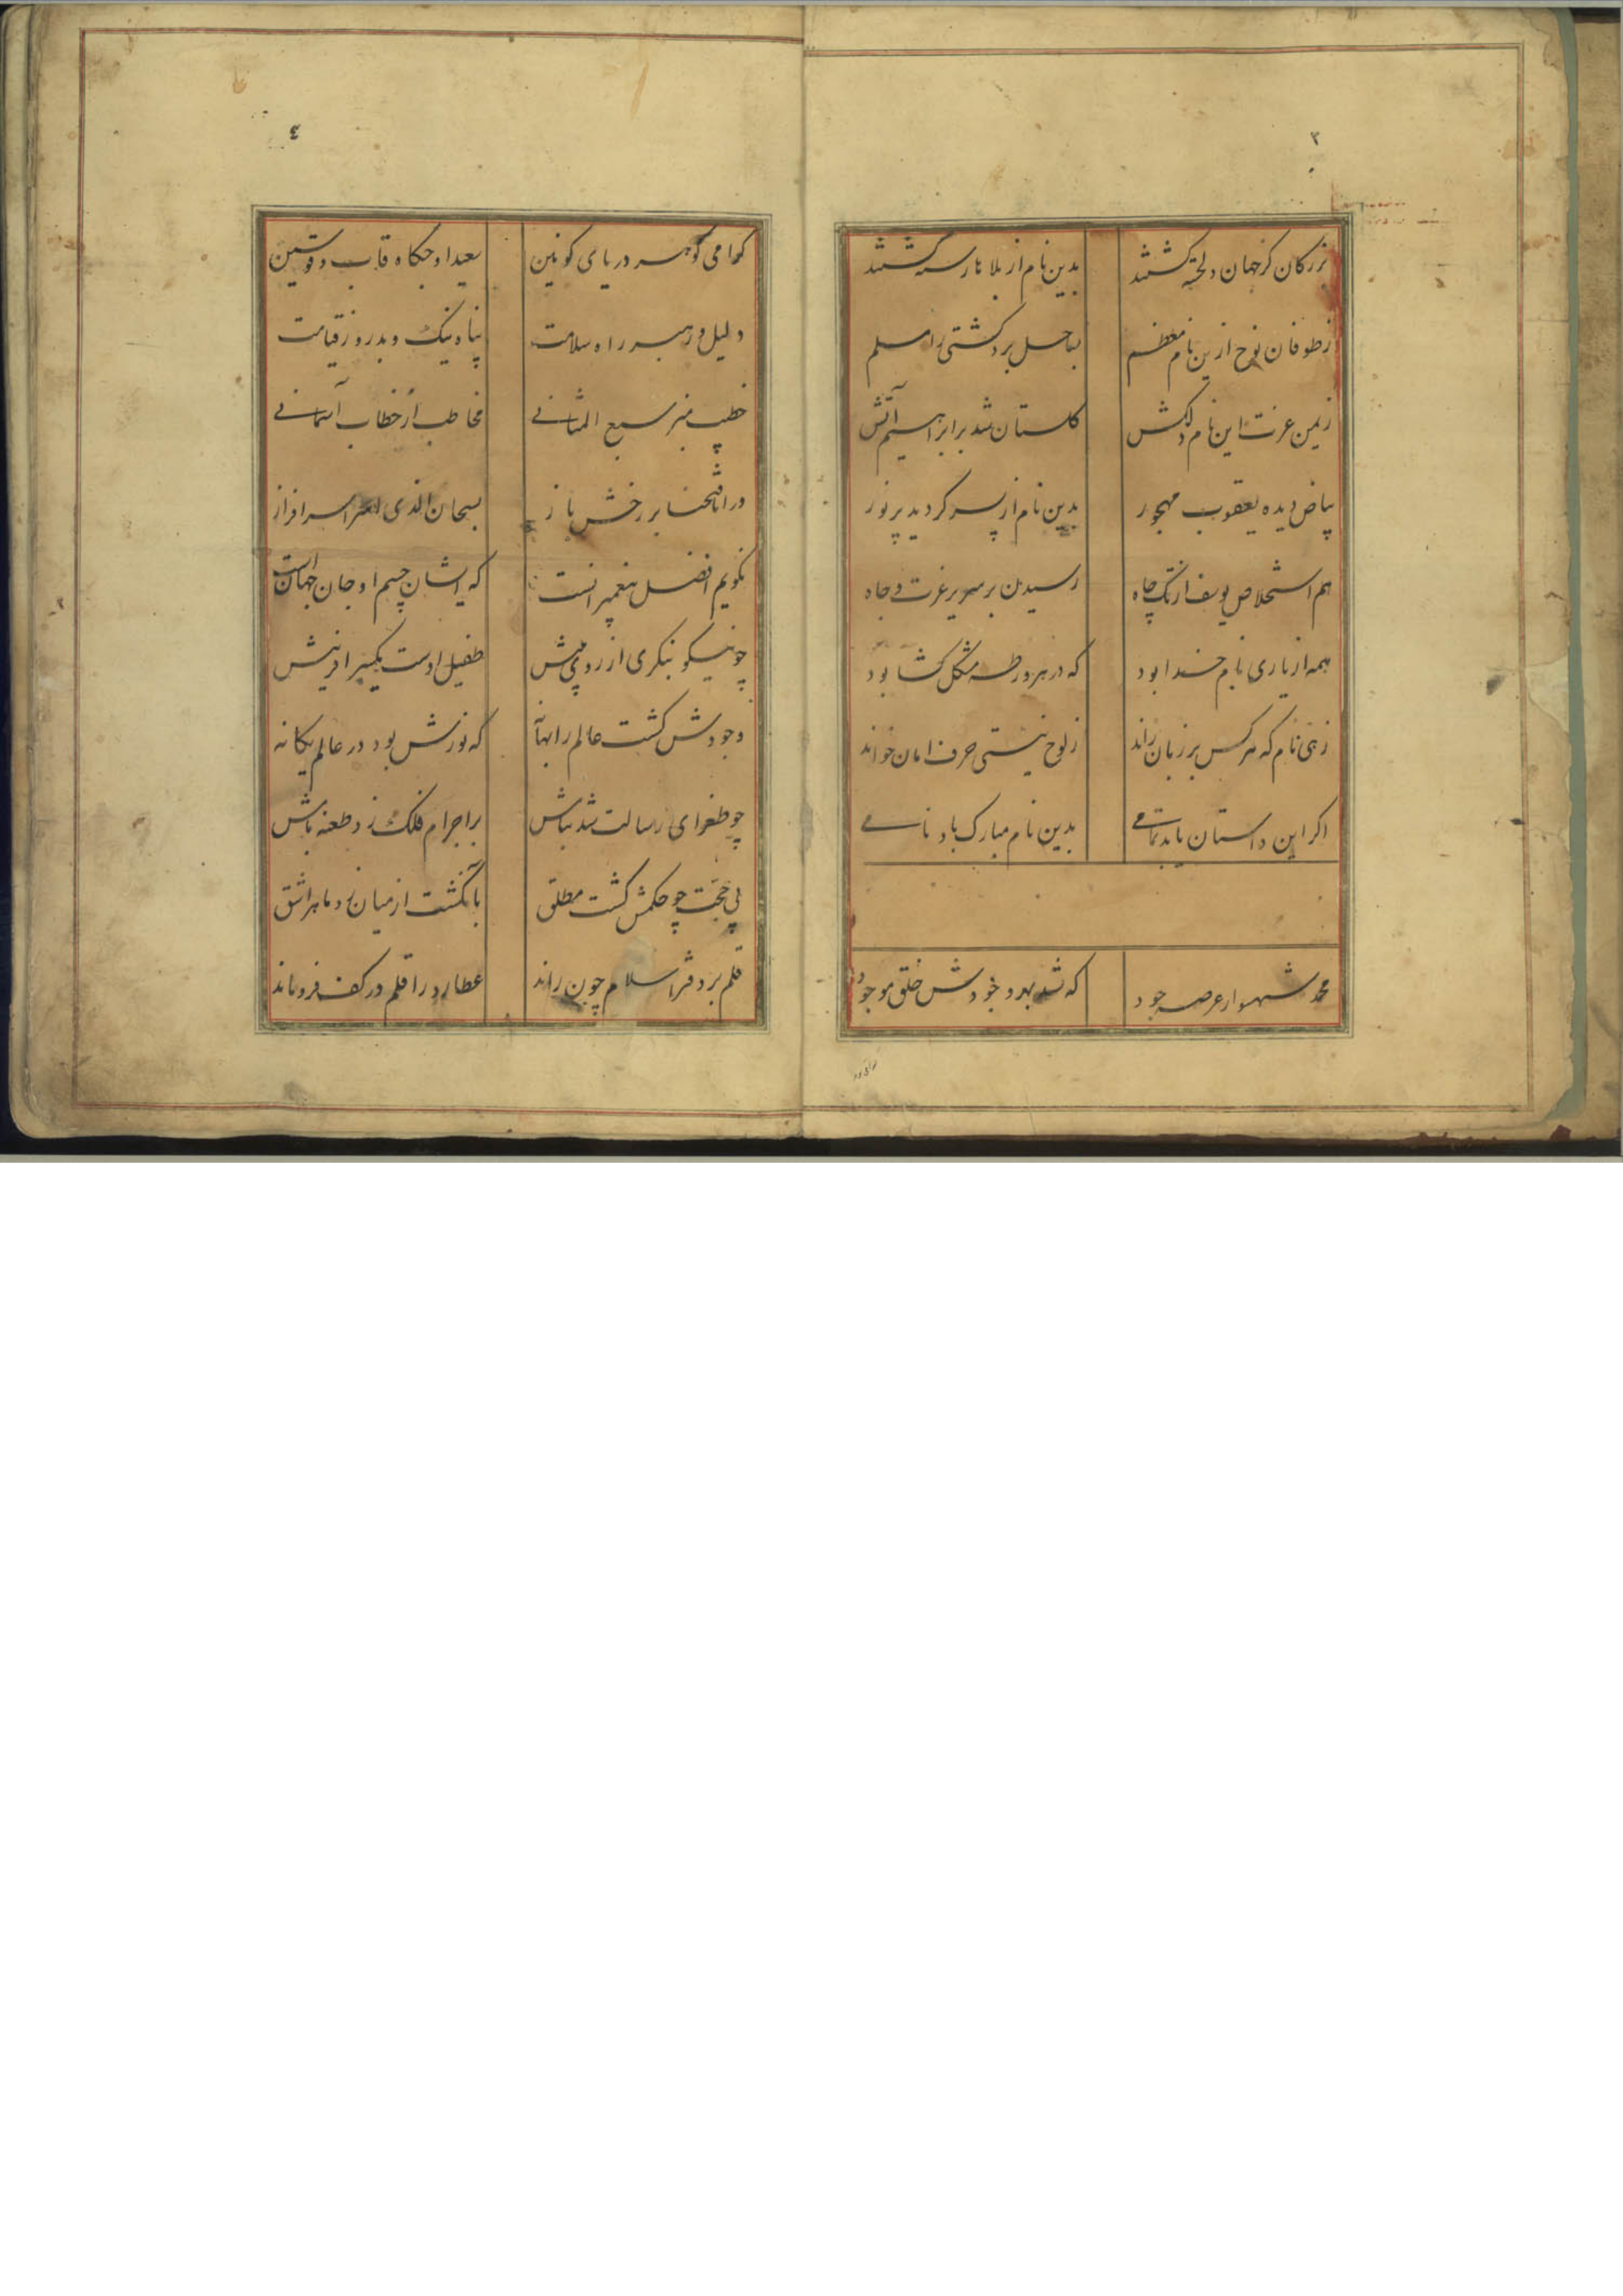 ۳
بزرکان کز جهان دلخسته کشتند بدین نام از بلاها رسته کشتند
زطوفان نوح ازین نام معظم بساحل برد کشتی را مسلم
زیمن عزت این نام دلکش کلستان شد برابراهیم آتش
بیاض دیده یعقوب مهجور بدین نام از پسر کردید پرنور
هم استخلاص یوسف از تک چاه رسیدن بر سریر عزت و جاه
همه از یاری نام خدا بود که در هر ورطه مشکل کشا بود
زهی نام که هر کس بر زبان راند زلوح نیستی حرف امان خواند
اکر این داستان یابد تمامی بدین نام مبارک باد نامی
محمد شهسوار عرصه جود که شد بهر وجودش خلق موجود
٤
کرامی کوهر دریای کونین بعید اوجکاه قاب و قوسین
دلیل و رهبر راه سلامت پناه نیک و بد روز قیامت
خطیب منبر سبع المثانی مخاطب از خطاب آسمانی
در انافتحنا بر رخش باز بسبحان الذی اسرا سرافراز
نکویم افضل پیغمبرانست که ایشان جسم او جان جهانست
چو نیکو بنکری از روی بینش طفیل اوست یکسر افرینش
وجودش کشت عالم را بهانه که نورش بود در عالم یکانه
چو طغرای رسالت شد بنامش بر اجرام فلک زد طعنه بامش
پی حجت چو حکمش کشت مطلق بانکشت از میان زد ماه را شق
قلم بر دفتر اسلام چون راند عطارد را قلم در کف فروماند